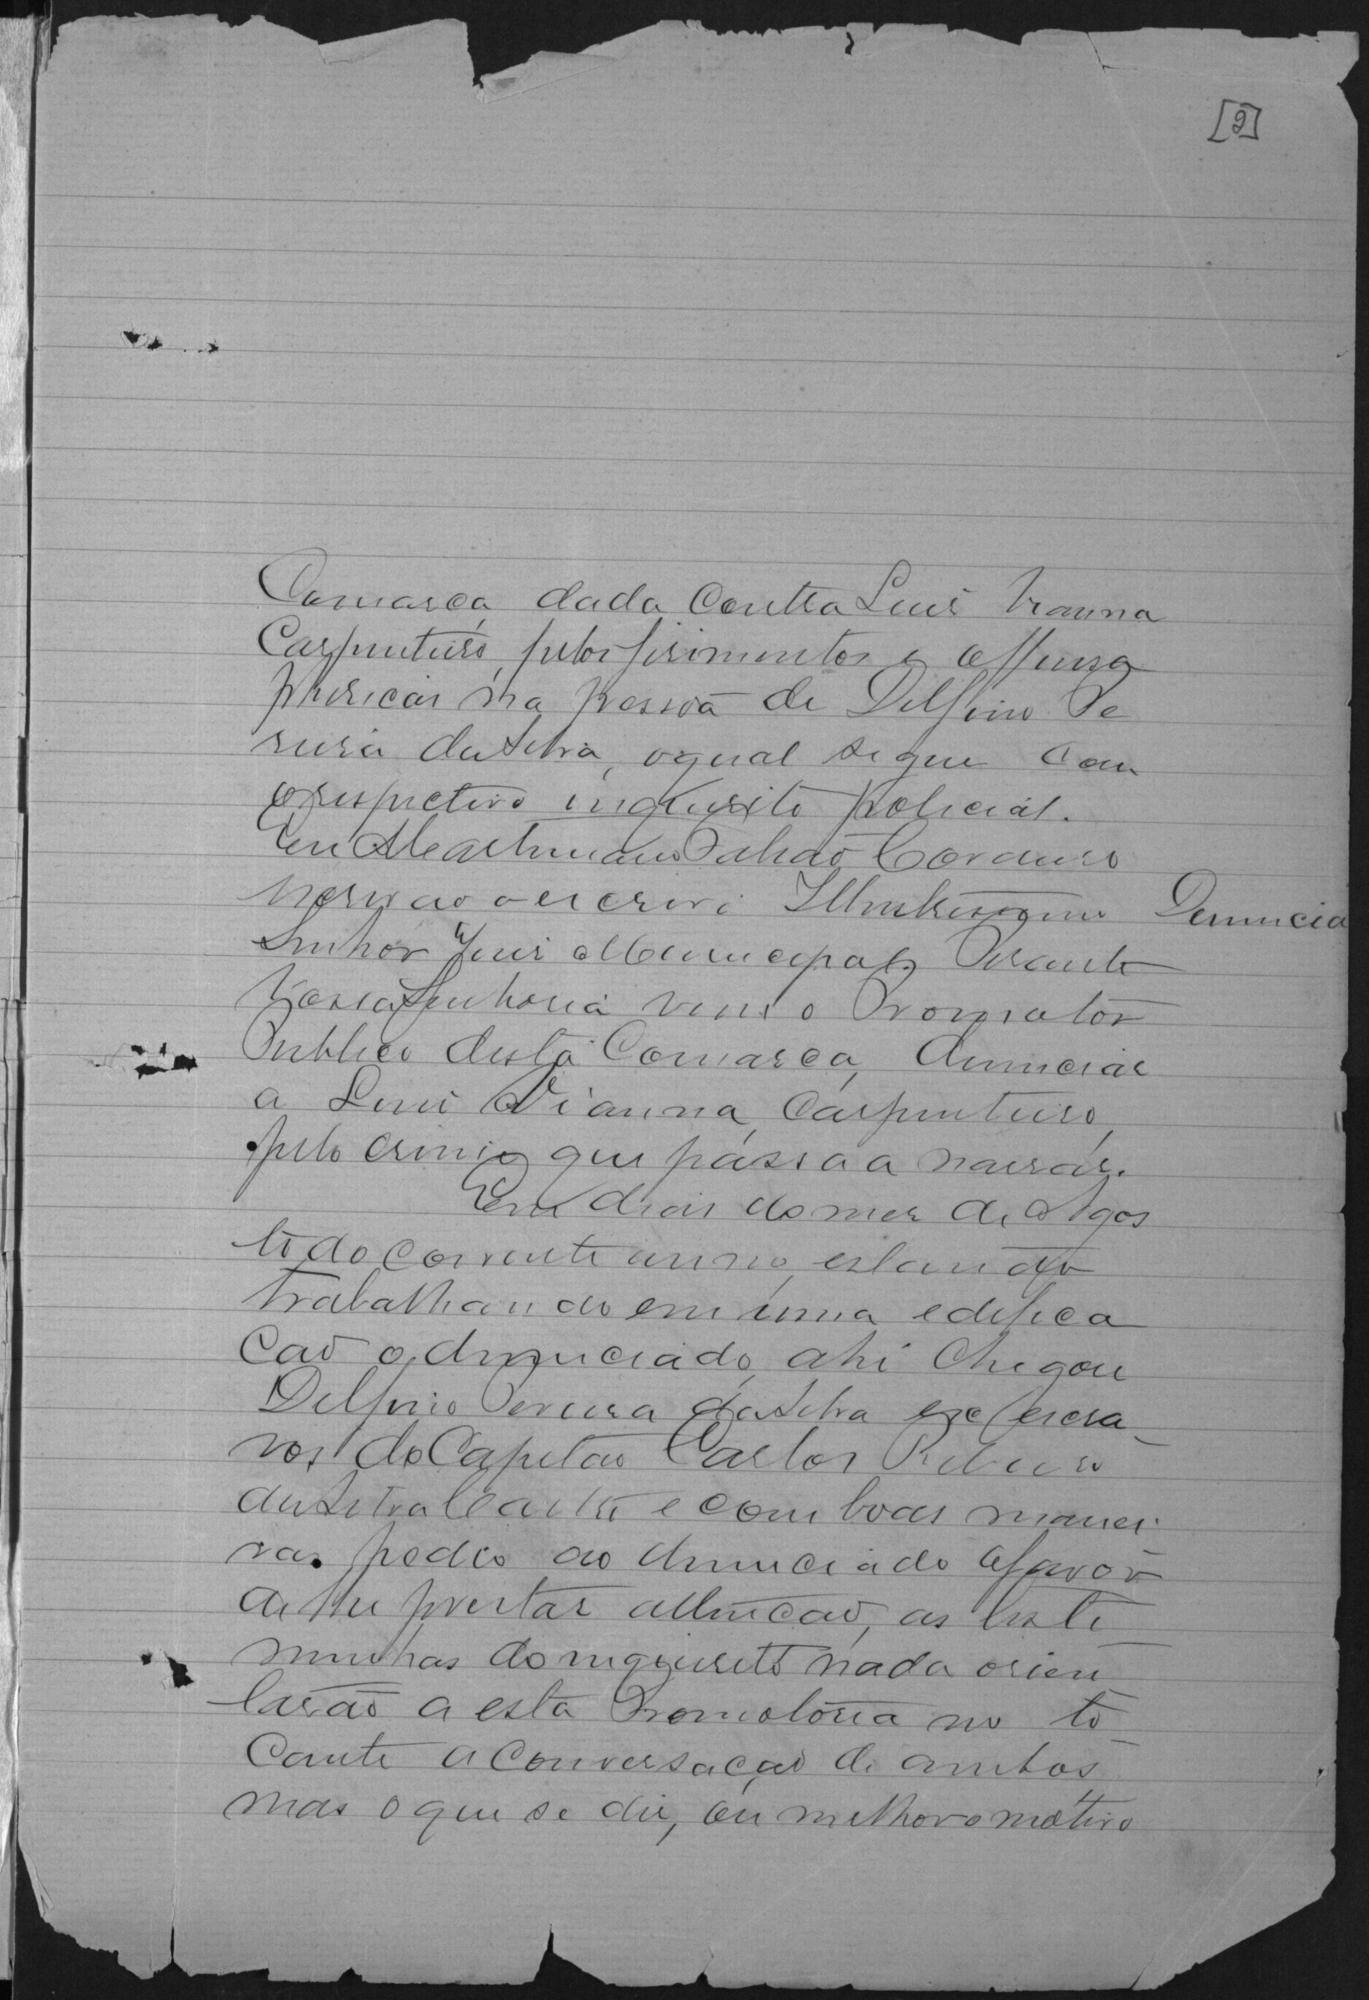 [2]
Comarca, dada contra Luis Vianna
Carpinteiro, pelos ferimentos e offensa
phisicas na pessoa de Delfino Pe
reira da Silva, o qual segue com
o respectivo inquerito policial.
Eu Maximiano Cordeiro
escrivão o escrevi Illustrissimo
Denuncia
Senhor Juis Municipal, Perante
Vossa Senhoria vem o Promotor
Publico desta Comarca, denunciar
a Luis Vianna, Carpinteiro,
pelo crime que passa a narrar.
Em dois do mes de Agos
to do corrente anno, estando
trabalhando em uma edifica
cão o denunciado, ahi chegou
Delfino Pereira da Silva ex escra
vos do Capitão Carlos Ribeiro
da Silva e com boas manei
ras pedio ao denunciado o favor
de lhe prestar attencão, as teste
munhas do inquerito nada orien
tarão a esta Promotoria no to
cante a conversação de ambos
mas o que se diz, ou melhor o motivo